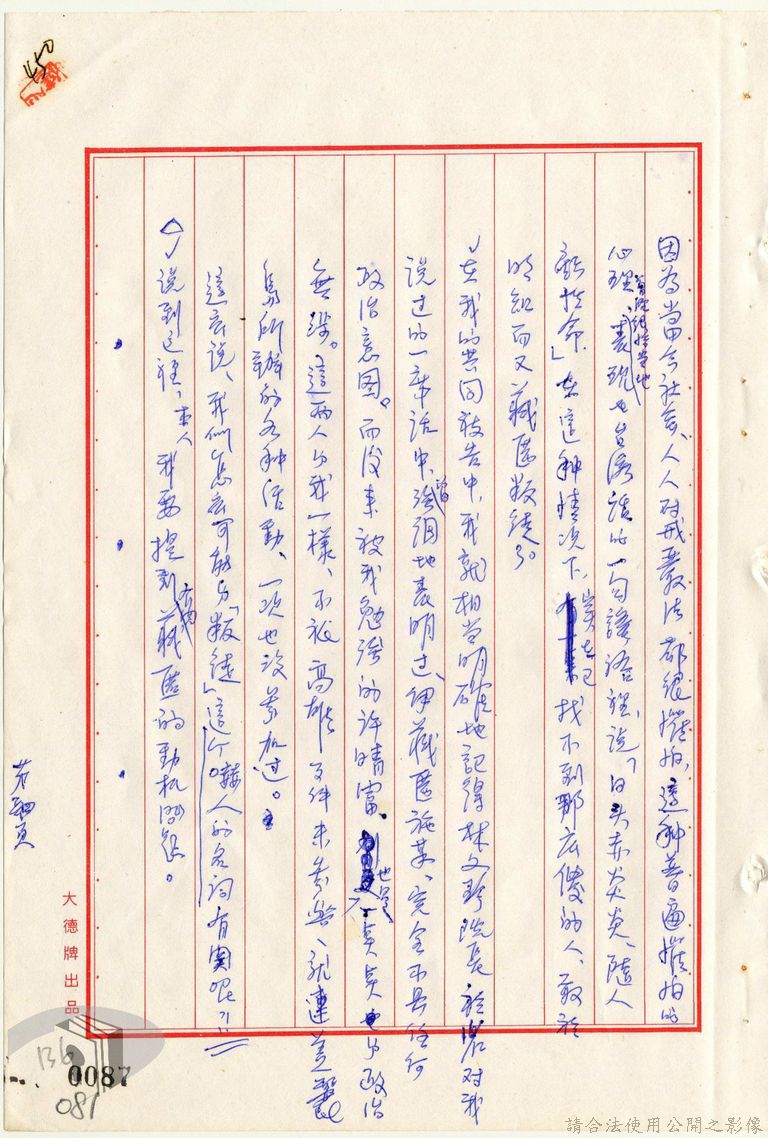 450
因為當今社會、人人对戒嚴法都很懼怕,這種普遍懼怕的
心理、曾經很恰当地表現在台湾話的一句諺語裡,說「日头赤炎炎、隨人
顧性命」在這种情况下,实在已找不到那広傻的人、敢於
明知而又藏匿叛徒了。
在我的共同被告中,我就相当明確地記得林文珍院長於
说过的一席話中,曾詳細地表明过、伊藏匿施某、完全不具任何
政治意图。而後来被我勉强的许晴富、也是一貞貞也与政治
無涉。這兩人与我一樣、不祗高雄事件未参與、就連美麗
島所辦的各种活動、一次也没参加过。
這広说、我们怎広可能与「叛徒」這个嚇人的名詞有関呢?!!
说到这裡、本人我要提到有関藏匿的動机問題。
大德牌出品
B6
0087
081
請合法使用公開之影像